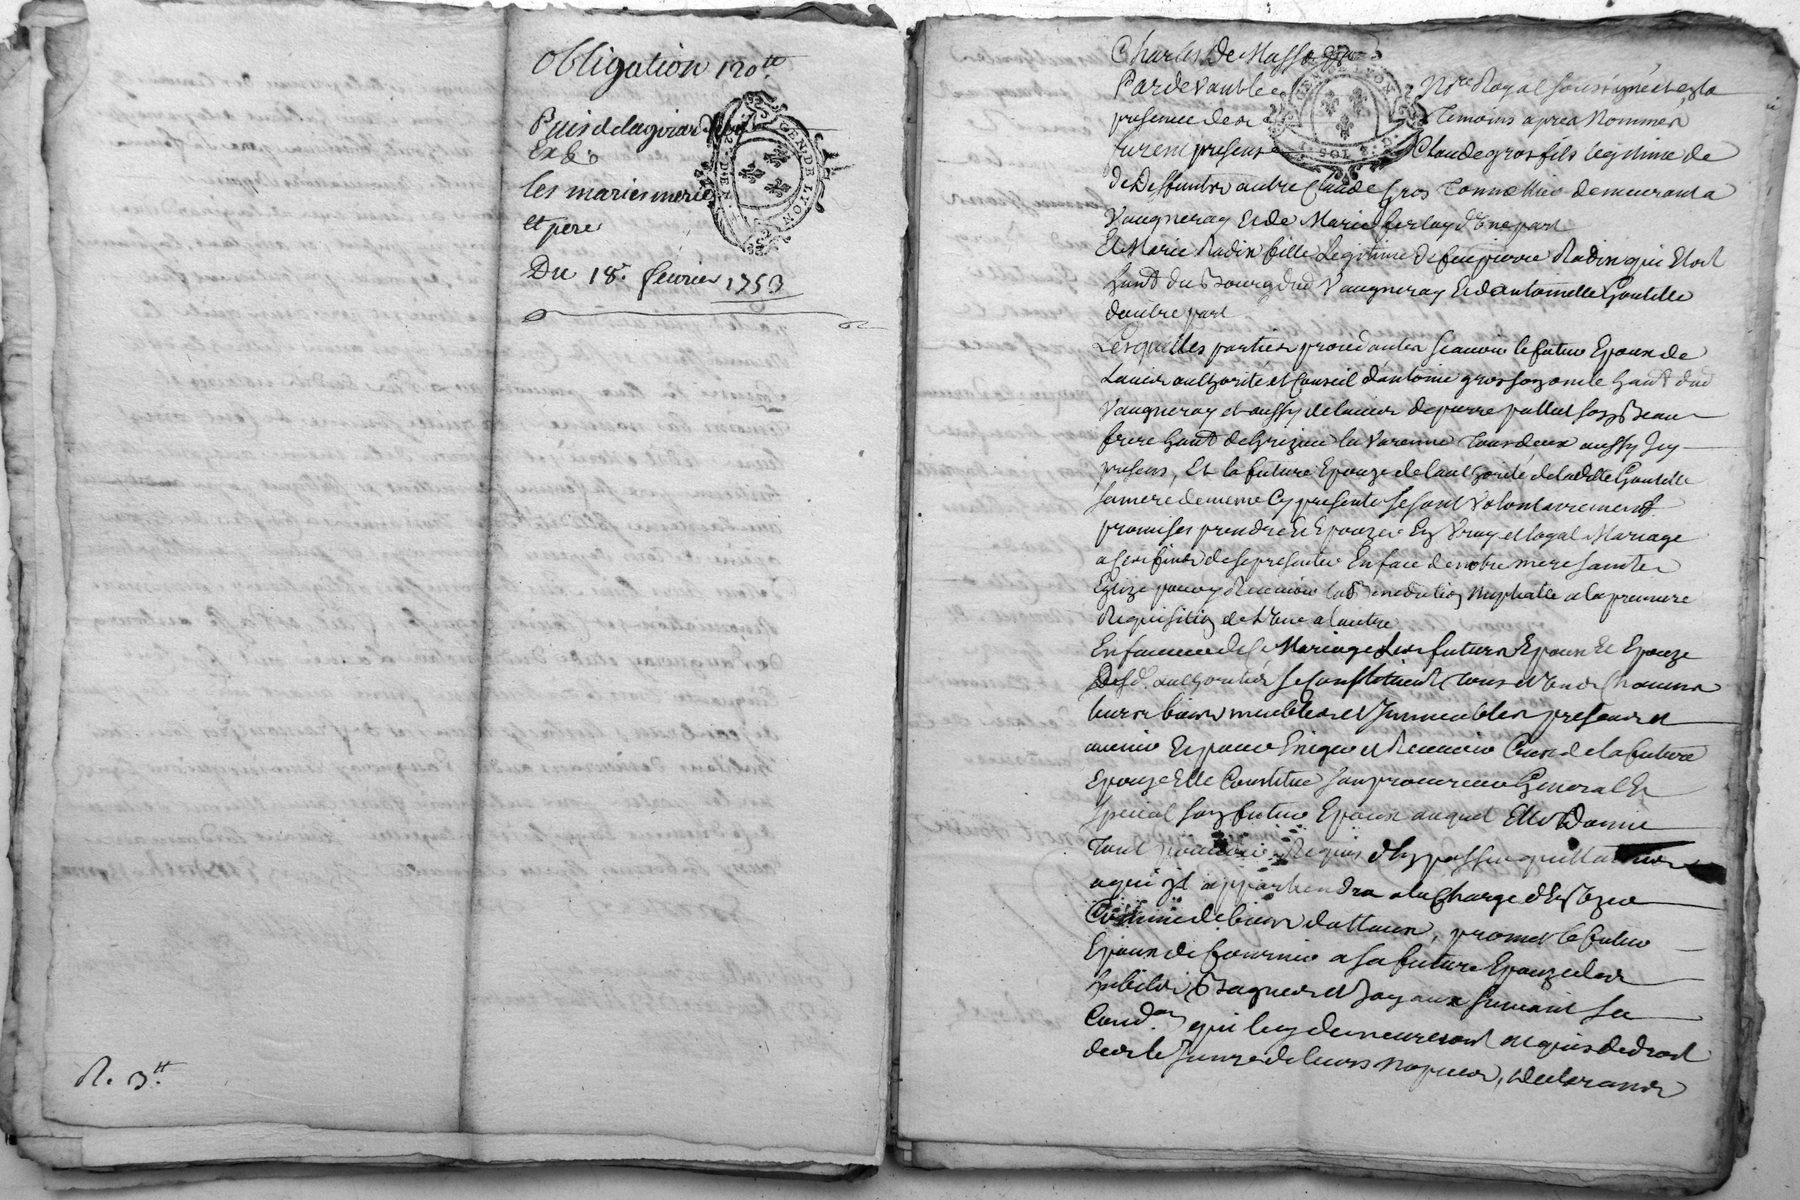 Obligation 120ᵗᵗ
les maries
et pere
Du 18ᵉ février 1753
R. 3ᵗᵗ
GEN. DE LYON
Charles De Masso
Pardevant le Nʳᵉ Royal soussigné et en la
presence des temoins apres nommes
furent presens Claude gros fils legitime de
de Deffunt autre Claude Gros Tonnellier demeurant a
Vaugneray Et de Marie ferlay d'Une part
Et Marie Radix fille Legitime de feu pierre Radix qui Etoit
habᵗ du Bourg dud Vaugneray Et d'antoinette Goutelle
dautre part
Lesquelles parties procedantes scavoir le futur Epoux de
Lavis authorité et Conseil dantoine gros son oncle habᵗ dud
Vaugneray et aussy de lavis de pierre son Beau
frere habᵗ de Grezieu la Varenne tous deux aussy Icy
presens, Et la future Epouze de lauthorité de ladᵗᵉ Goutelle
sa mere de meme Cy presente se sont Volontairement
promis se prendre Et Epouzer En Vray et loyal Mariage
a ces fins de se presenter En face de notre mere sainte
Eglize pour y Recevoir la Benediction Nuptialle a la premiere
Requisition de l'Un a lautre
En faveur de Ce Mariage Les futurs Epoux Et Epouze
Desd. authorités se Constituent tous Et Uns Chacuns
leurs biens meubles et Immeubles presens et
avenir Et pour Exiger et Recevoir Ceux de la future
Epouze Elle Constitue son procureur General Et
special son futur Epoux auquel Elle Donne
tout pouvoir Requis d'En passer quittances
a qui Il appartiendra a la Charge d'En
Comme de biens dottaux, promet le futur
Epoux de fournir a sa future Epouze des
habits Bagues et Joyaux suivant sa
Condᵒⁿ qui luy demeureront acquis de droit
des le Jour de leurs Nopces, declarants